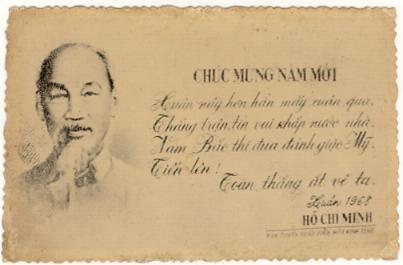 CHÚC MỪNG NĂM MỚI
Xuân này hơn hẳn mấy xuân qua.
Thắng trận, tin vui khắp nước nhà.
Nam Bắc thi đua đánh giặc Mỹ.
Tiến lên!
Toàn thắng ắt về ta.
Xuân 1968
HỒ CHÍ MINH